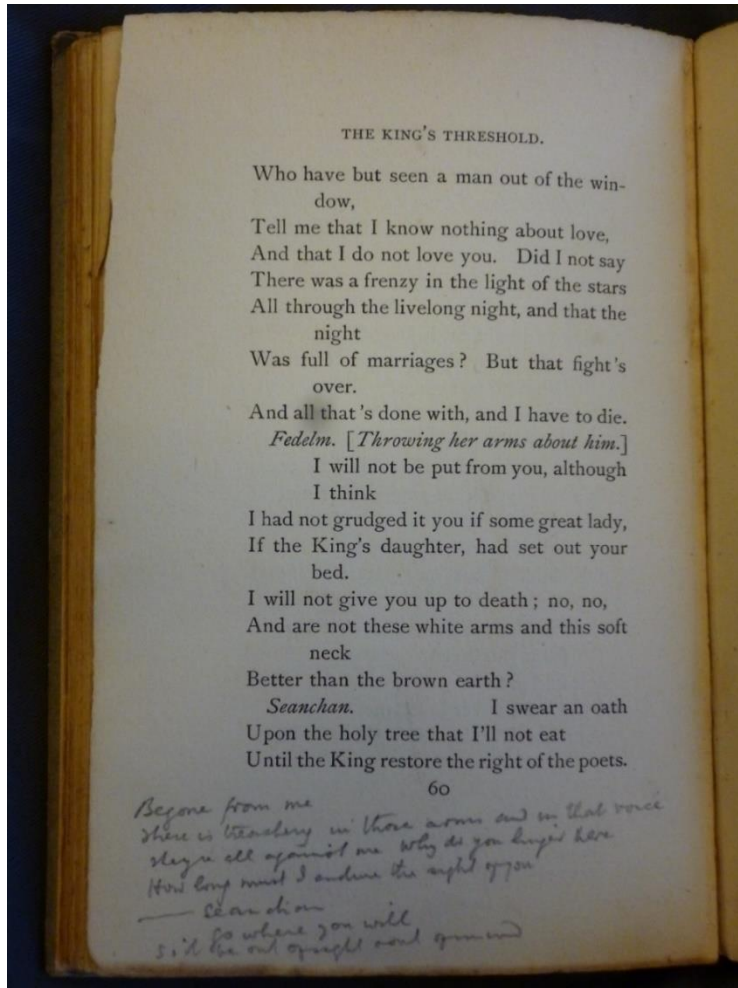 THE KING'S THRESHOLD.
Who have but seen a man out of the win-
dow,
Tell me that I know nothing about love,
And that I do not love you. Did I not say
There was a frenzy in the light of the stars
All through the livelong night, and that the
night
Was full of marriages? But that fight's
over.
And all that's done with, and I have to die.
Fedelm. [Throwing her arms about him.]
I will not be put from you, although
I think
I had not grudged it you if some great lady,
If the King's daughter, had set out your
bed.
I will not give you up to death; no, no,
And are not these white arms and this soft
neck
Better than the brown earth?
Seanchan. I swear an oath
Upon the holy tree that I'll not eat
Until the King restore the right of the poets.
60
Begone from me
There is treachery in those arms and in that voice
They're all against me why do you linger here
How long must I endure the sight of you
Seanchan
Go where you will
out of sight and of mind